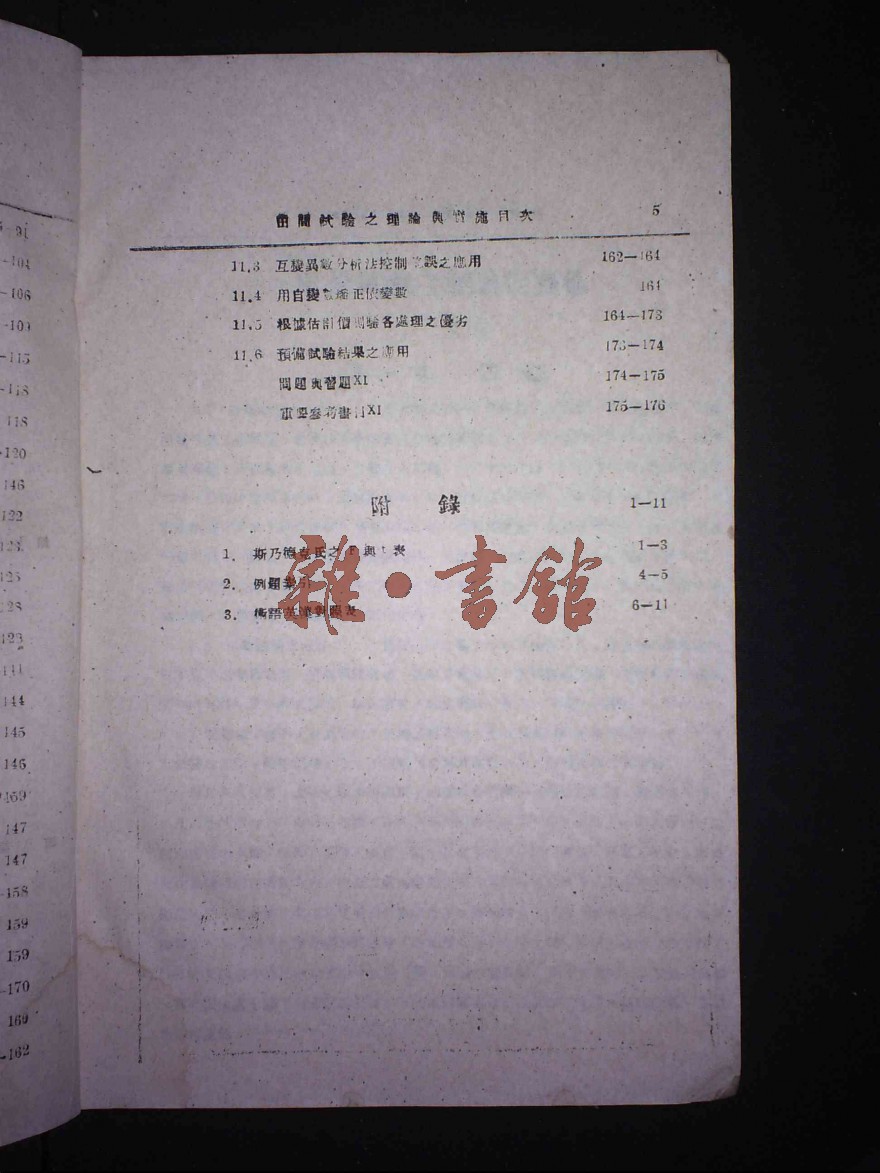 91
-104
-106
-109
-115
-118
118
-120
146
122
124
125
128
123
141
144
145
146
147
147
-158
159
159
-170
169
-162
田間試驗之理論與實施目次 5
11.3 互變異數分析法控制 誤之應用 162—164
11.4 用自變 矯正依變數 164
11.5 根據估計價測驗各處理之優劣 164—173
11.6 預備試驗結果之應用 173—174
問題與習題XI 174—175
重要參考書目XI 175—176
附錄 1—11
1. 斯乃德 氏之 F 與 t 表 1—3
2. 例題索引 4—5
3. 術語英漢對照表 6—11
雜·書館